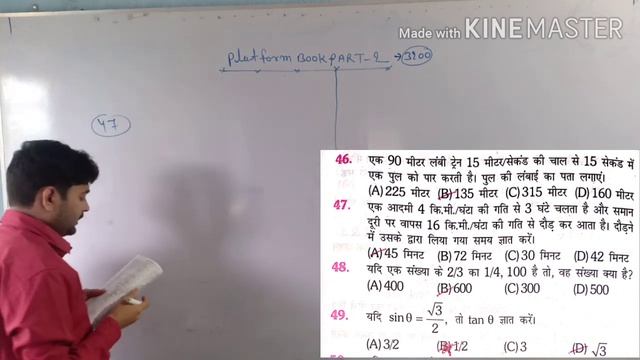 Made with KINEMASTER
Platform Book PART-2 → 3200
47
46. एक 90 मीटर लंबी ट्रेन 15 मीटर/सेकंड की चाल से 15 सेकंड में
एक पुल को पार करती है। पुल की लंबाई का पता लगाएं।
(A) 225 मीटर (B) 135 मीटर (C) 315 मीटर (D) 160 मीटर
47. एक आदमी 4 कि.मी./घंटा की गति से 3 घंटे चलता है और समान
दूरी पर वापस 16 कि.मी./घंटा की गति से दौड़ कर आता है। दौड़ने
में उसके द्वारा लिया गया समय ज्ञात करें।
(A) 45 मिनट (B) 72 मिनट (C) 30 मिनट (D) 42 मिनट
48. यदि एक संख्या के 2/3 का 1/4, 100 है तो, वह संख्या क्या है?
(A) 400 (B) 600 (C) 300 (D) 500
49. यदि sinθ = √3/2, तो tan θ ज्ञात करें।
(A) 3/2 (B) 1/2 (C) 3 (D) √3